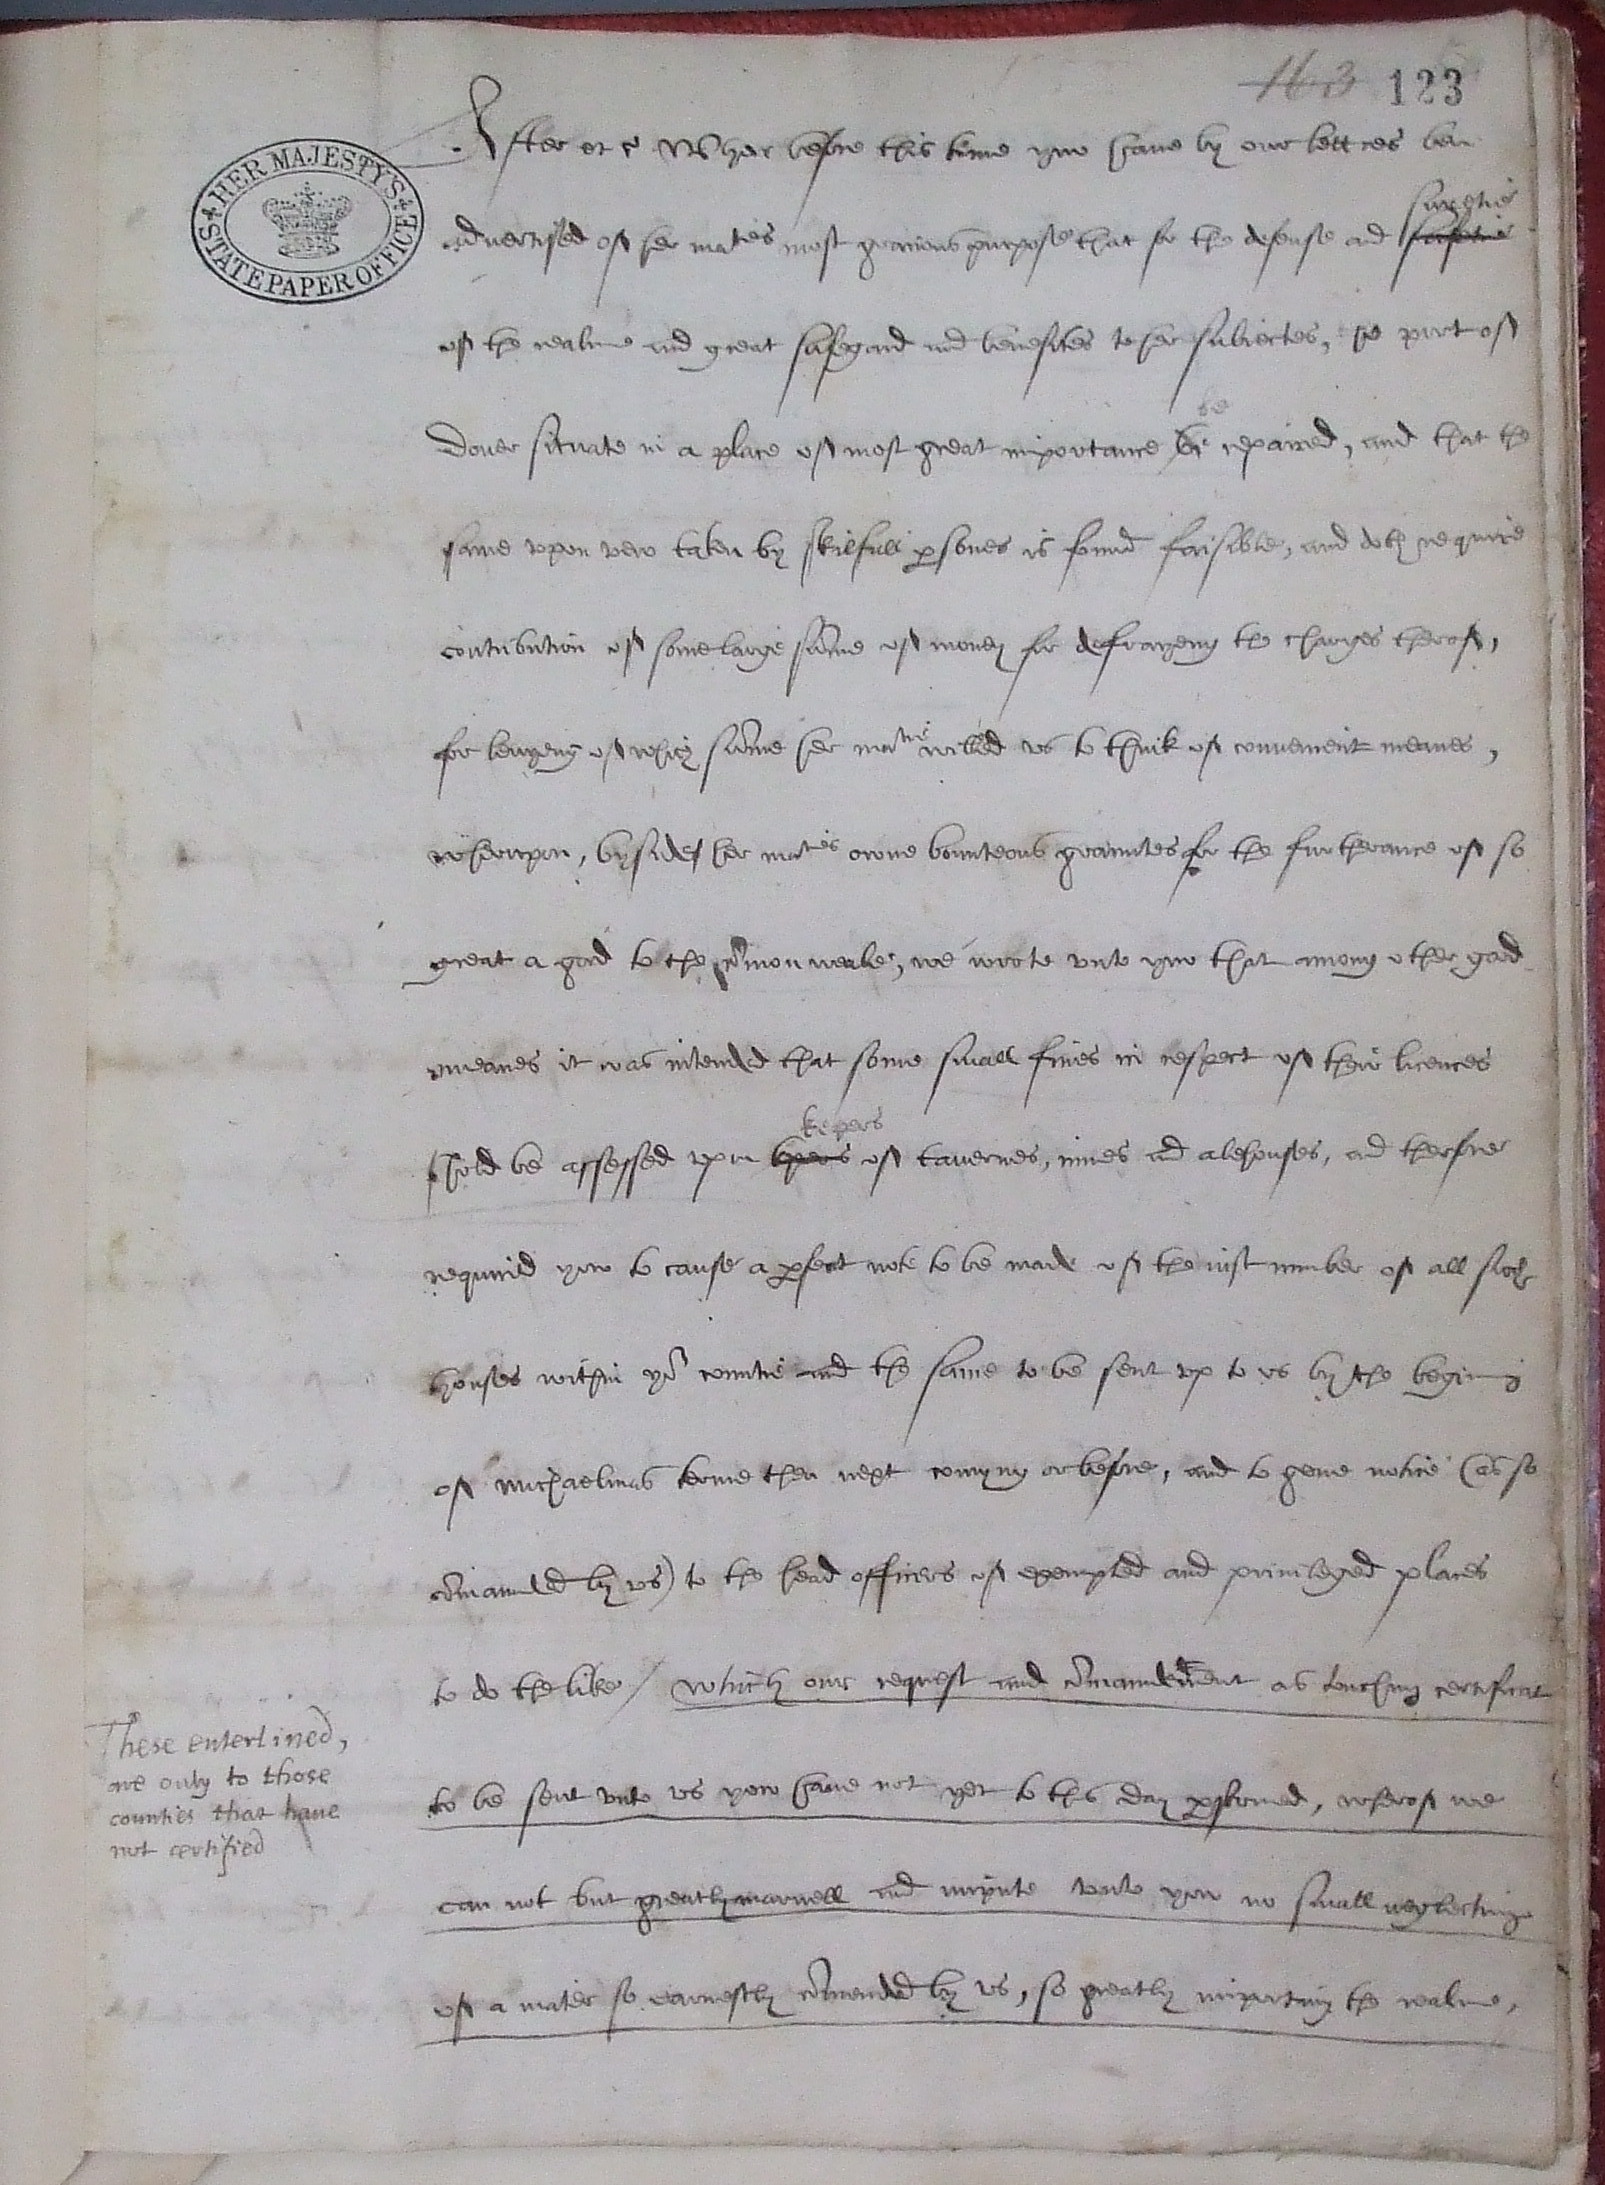 163 123
HER MAJESTY'S
STATE PAPER OFFICE
After et c Wher before this time yow haue by our lettres ben
aduertised of her maties most gracious purpose that for the defense and safetie suretie
of the realme and great safegard and benefites to her subiectes, the port of
Douer situate in a place of most great importance be be repaired, and that the
same vpon vew taken by skilfull psones is found faisible, and doth require
contribution of some large sume of money for defrayeng the charges therof,
for leuyeng of which sume her matie willed vs to think of conuenient meanes,
wherupon, bysides her maties owne bounteous grauntes for the furtherance of so
great a good to the comon weale, we wrote vnto yow that among other good
meanes it was intended that some small fines in respect of their licences
shold be assessed vpon kepers of tauernes, innes and alehouses, and therfore
required yow to cause a pfect note to be made of the iust number of all such
houses within yor countie and the same to be sent vp to vs by the begining
of Michaelmas terme then next comyng or before, and to geue notice (as so
comaunded by vs) to the head officers of exempted and priuileged places
to do the like / which our request and comaundement as touching certificat
to be sent vnto vs yow haue not yet to this day pformed, wherof we
can not but greatly maruell and impute vnto yow no small neglecting
of a mater so earnestly comended by vs, so greatly importing the realme,
These enterlined,
are only to those
counties that haue
not certified